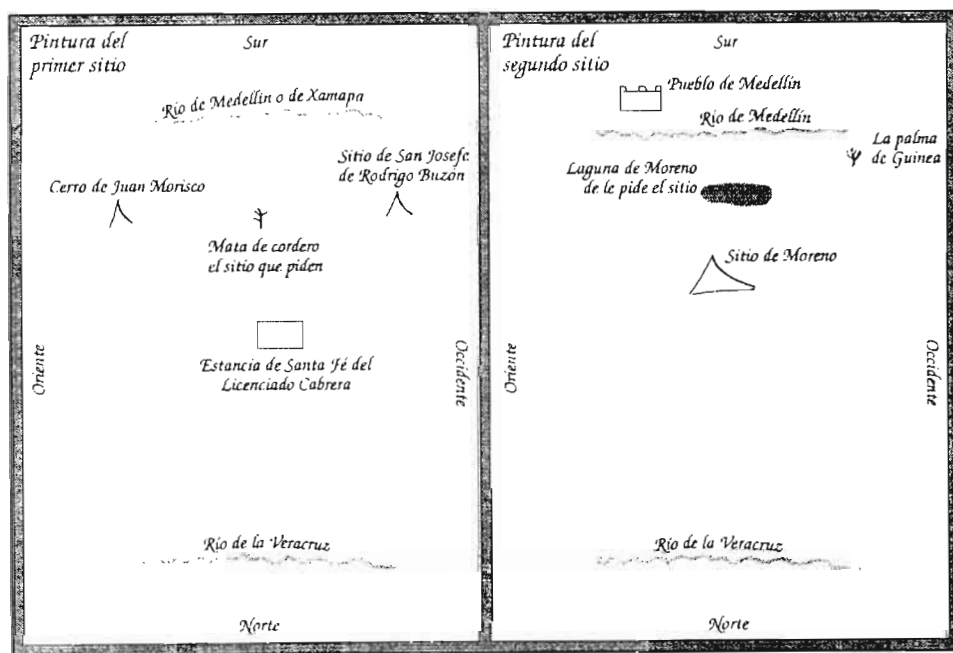 Pintura del
primer sitio
Sur
Río de Medellín o de Xamapa
Sitio de San Josefe
de Rodrigo Buzón
Cerro de Juan Morisco
Mata de cordero
el sitio que piden
Estancia de Santa Fé del
Licenciado Cabrera
Oriente
Occidente
Río de la Veracruz
Norte
Pintura del
segundo sitio
Sur
Pueblo de Medellín
Río de Medellín
La palma
de Guinea
Laguna de Moreno
de le pide el sitio
Sitio de Moreno
Oriente
Occidente
Río de la Veracruz
Norte